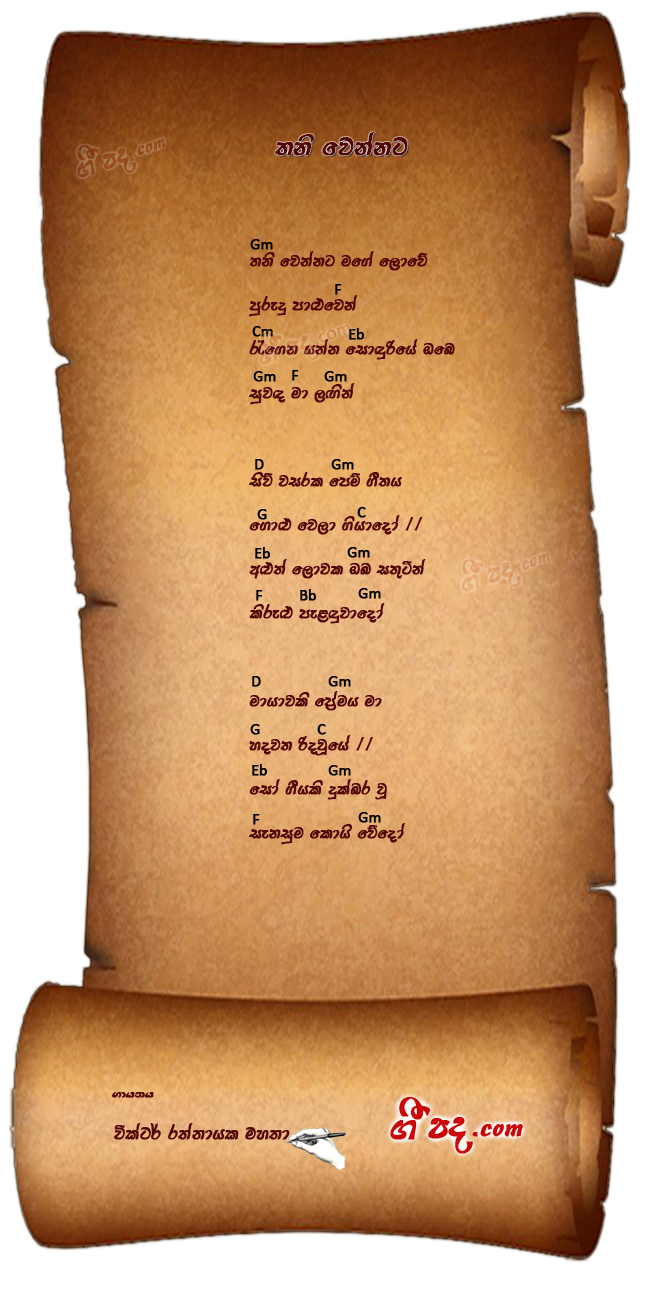 ගී පද.com
තනි වෙන්නට
Gm
තනි වෙන්නට මගේ ලොවේ
F
පුරුදු පාළුවෙන්
Cm Eb
රැගෙන යන්න සොඳුරියේ ඔබෙ
Gm F Gm
සුවඳ මා ලඟින්
D Gm
සිව් වසරක පෙම් ගීතය
G C
ගොළු වෙලා ගියාදෝ //
Eb Gm
අළුත් ලොවක ඔබ සතුටින්
ගී පද.com
F Bb Gm
කිරුළු පැළඳුවාදෝ
D Gm
මායාවකි ප්‍රේමය මා
G C
හදවත රිදවූයේ //
Eb Gm
සෝ ගීයකි දුක්බර වූ
F Gm
සැනසුම කොයි වේදෝ
ගායනය
වික්ටර් රත්නායක මහතා
ගී පද.com